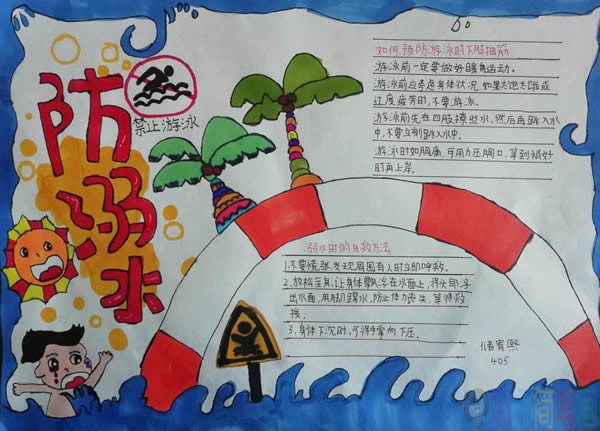 防溺水
禁止游泳
如何预防游泳时下肢抽筋
游泳前一定要做好暖身运动。
游泳前应考虑身体状况,如果太饱太饿或
过度疲劳时,不要游泳。
游泳前先在四肢撩些水,然后再跳入水
中,不要立刻跳入水中。
游泳时如胸痛,可用力压胸口,等到稍好
时再上岸。
溺水时的自救方法
1.不要慌张,发现周围有人时立即呼救。
2.放松全身,让身体飘浮在水面上,将头部浮
出水面,用脚踢水,防止体力丧失,等待救
援。
3.身体下沉时,可将手掌向下压。
405
简笔画